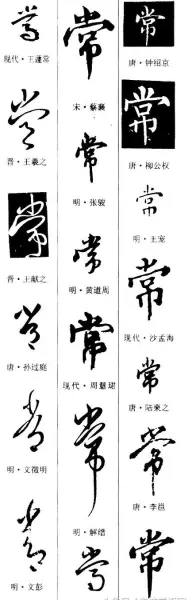 常
唐·钟绍京
常
唐·柳公权
常
明·王宠
常
现代·沙孟海
常
唐·陆柬之
常
唐·李邕
常
常
宋·蔡襄
常
明·张骏
常
明·黄道周
常
现代·周慧珺
常
明·解缙
常
常
现代·王蘧常
常
晋·王羲之
常
晋·王献之
常
唐·孙过庭
常
明·文徵明
常
明·文彭